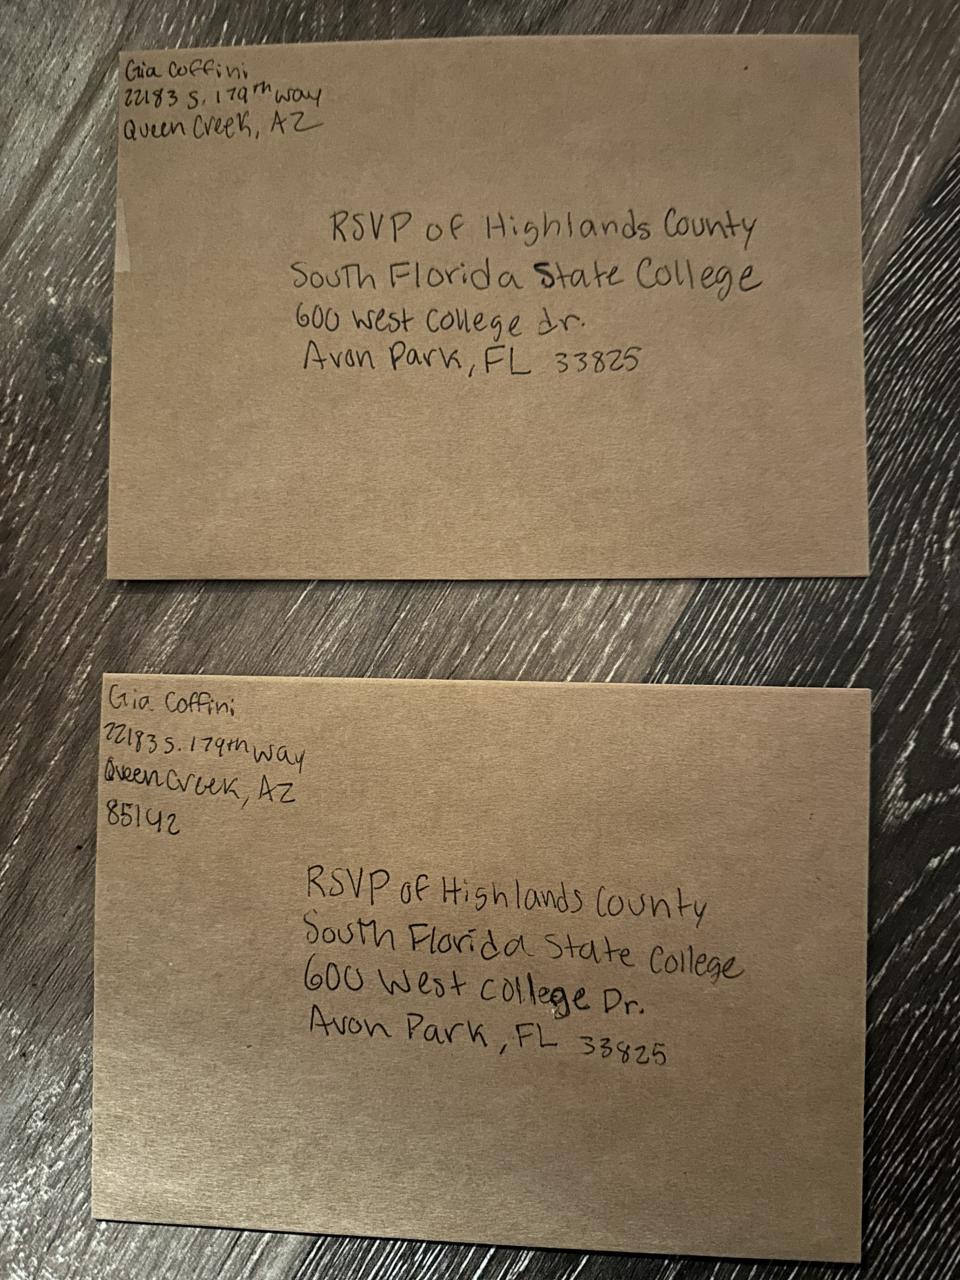 Gia Coffini
22183 S. 179th Way
Queen Creek, AZ
RSVP of Highlands County
South Florida State College
600 West College dr.
Avon Park, FL 33825
Gia Coffini
22183 S. 179th Way
Queen Creek, AZ
85142
RSVP of Highlands County
South Florida State College
600 West College Dr.
Avon Park, FL 33825